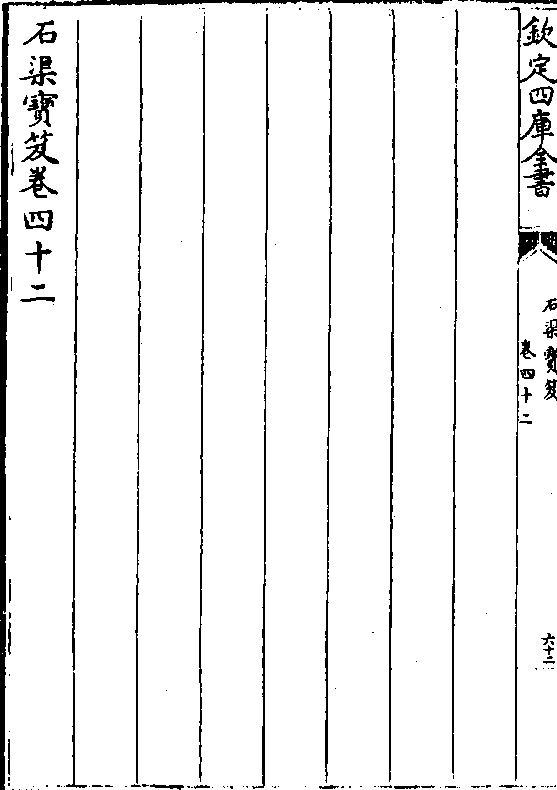 欽定四庫全書
石渠寶笈
卷四十二
六十二
石渠寶笈卷四十二